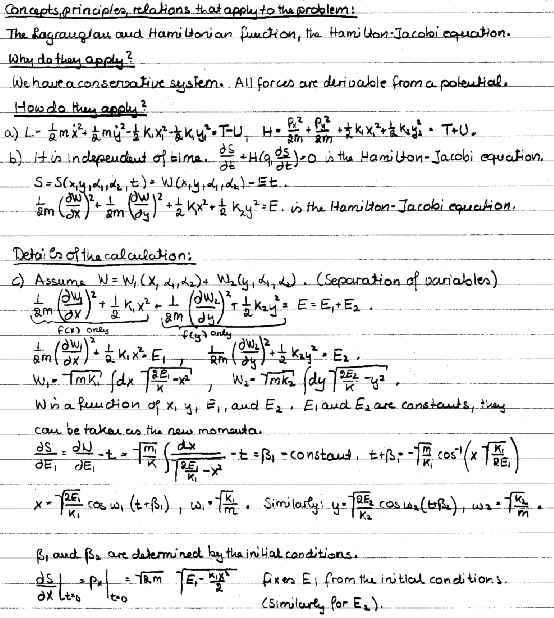 Concepts, principles, relations that apply to the problem:
The Lagrangian and Hamiltonian function, the Hamilton-Jacobi equation.
Why do they apply?
We have a conservative system. All forces are derivable from a potential.
How do they apply?
a) L = ½mẋ² + ½mẏ² - ½k₁x² - ½k₂y² = T-U, H = pₓ²/2m + p_y²/2m + ½k₁x² + ½k₂y² = T+U.
b) H is independent of time. ∂S/∂t + H(q, ∂S/∂t) = 0 is the Hamilton-Jacobi equation.
S = S(x,y,α₁,α₂,t) = W(x,y,α₁,α₂) - Et.
1/2m (∂W/∂x)² + 1/2m (∂W/∂y)² + ½k₁x² + ½k₂y² = E. is the Hamilton-Jacobi equation.
Details of the calculation:
c) Assume W = W₁(x,α₁,α₂) + W₂(y,α₁,α₂). (Separation of variables)
1/2m (∂W₁/∂x)² + ½k₁x² + 1/2m (∂W₂/∂y)² + ½k₂y² = E = E₁+E₂.
f(x) only f(y) only
1/2m (∂W₁/∂x)² + ½k₁x² = E₁, 1/2m (∂W₂/∂y)² + ½k₂y² = E₂.
W₁ = √mk₁ ∫dx √(2E₁/k - x²), W₂ = √mk₂ ∫dy √(2E₂/k - y²).
W is a function of x, y, E₁, and E₂. E₁ and E₂ are constants, they
can be taken as the new momenta.
∂S/∂E₁ = ∂W/∂E₁ - t = √(m/k₁) ∫ dx/√(2E₁/k₁ - x²) - t = β₁ = constant, t+β₁ = -√(m/k₁) cos⁻¹(x √(k₁/2E₁))
x = √(2E₁/k₁) cos ω₁(t+β₁), ω₁ = √(k₁/m). Similarly: y = √(2E₂/k₂) cos ω₂(t+β₂), ω₂ = √(k₂/m).
β₁ and β₂ are determined by the initial conditions.
∂S/∂x |t=0 = pₓ |t=0 = √2m √(E₁ - k₁x²/2) fixes E₁ from the initial conditions.
(Similarly for E₂).